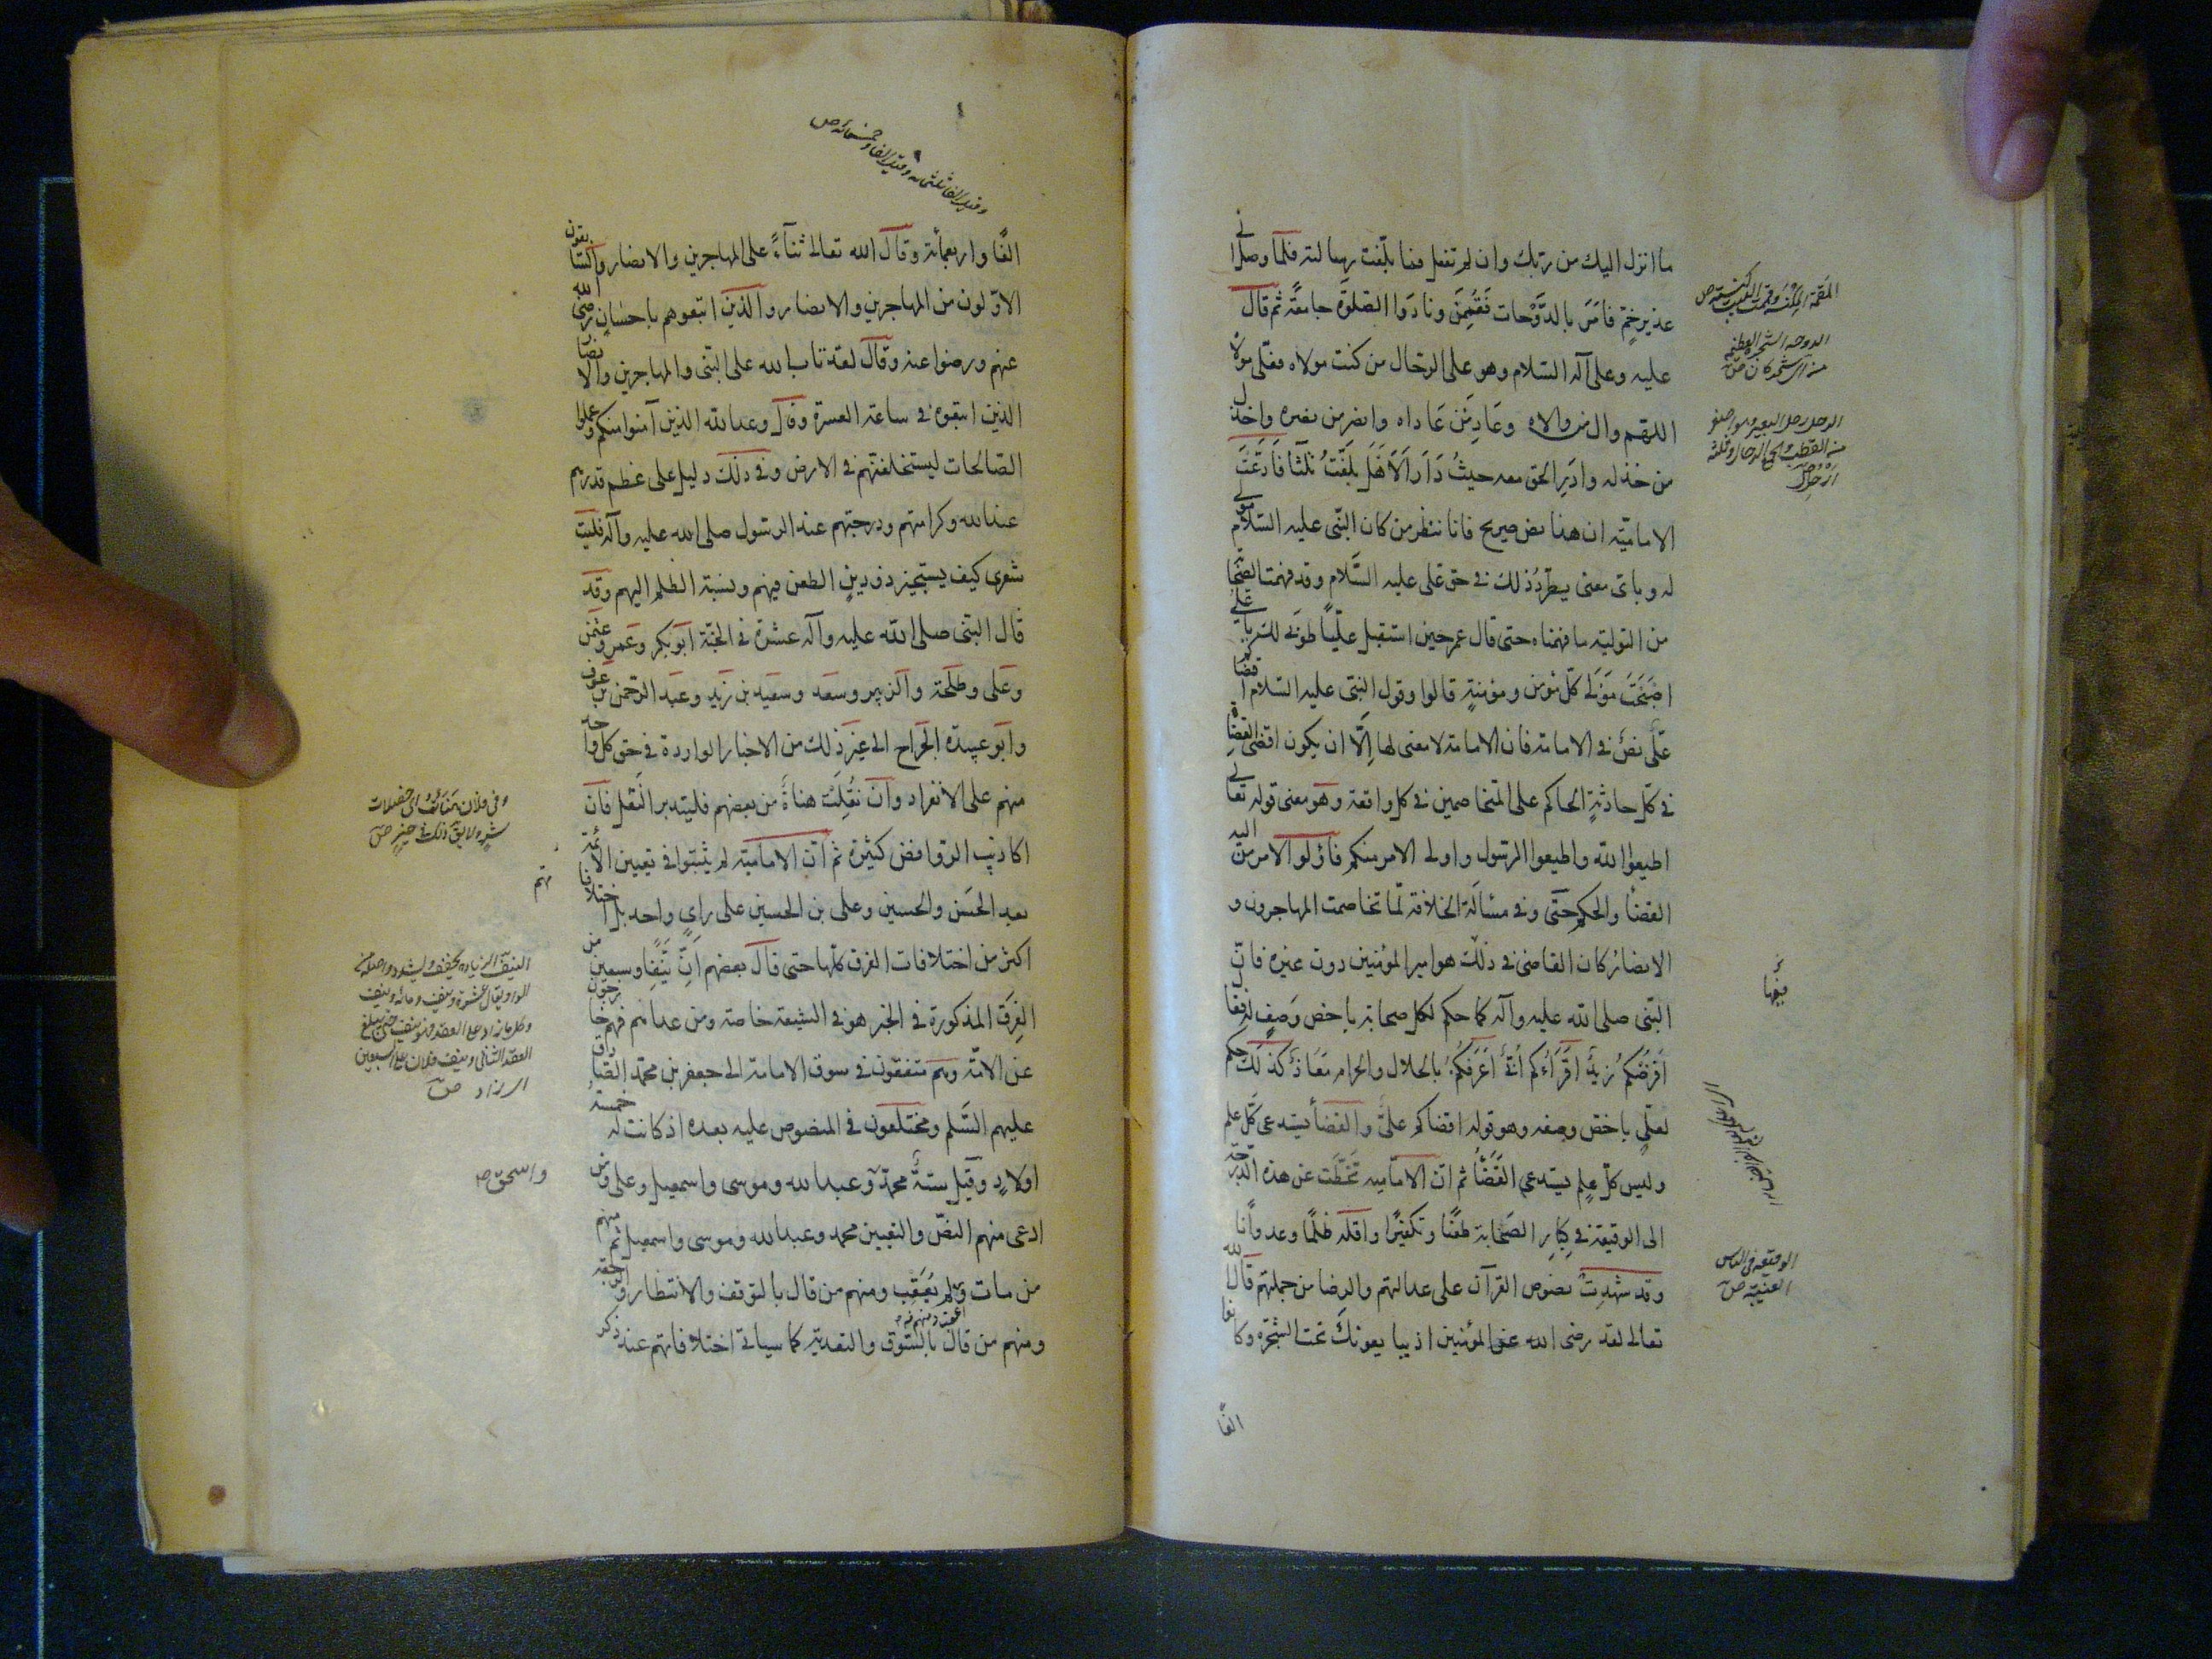 ما انزل اليك من ربك وان لم تفعل فما بلّغت رسالته فلما وصل الى
غدير خم فامر بالدَّوْحات فَقُمِمْنَ ونادَوا الصلوة جامعةً ثم قال
عليه وعلى آله السلام وهو على الرحال من كنت مولاه فعلى مولاه
اللهم وال من والاه وعَادِ مَنْ عَاداه وانصر من نصره واخذل
من خذله وادَرِ الحق معه حيثُ دَارَ اَلَا هَل بلغتُ ثلثًا فادَّعَت
الامامية ان هذا نص صريح فانا ننظر من كان النبى عليه السلام مولى
له وباى معنى يطّردُ ذلك فى حق على عليه السَّلام وقد فهمت الصحابة
من التولية ما فهمناه حتى قال عمر حين استقبل عليًّا طوبى لك يا على
اصبَحتَ مَوْلى كلّ مؤمن ومؤمنةٍ قالوا وقول النبى عليه السلام اقضاكم
علىٌّ نصٌّ فى الامامة فان الامامة لا معنى لها اِلّا ان يكون اقضى القضاة
فى كلّ حادثةٍ الحاكم على المتخاصمين فى كل واقعة وهو معنى قوله تعالى
اطيعوا الله واطيعوا الرسول واولى الامر منكم فاولو الامر من اليه
القضأ والحكم حتّى وفى مسألة الخلافة لمّا تخاصمت المهاجرون و
الانصار كان القاضى فى ذلك هو امير المؤمنين دون غيره فانّ
النبى صلى الله عليه وآله كما حكم لكل صحابة باخص وَصفٍ له فقال
اَفرَضُكم زيدٌ اَقرَاءُكم اُبَىٌّ اَعْرَفكُم بالحلال والحرام مُعَاذٌ كذلك حكم
لعلىٍ باخصّ وصفه وهو قوله اقضاكم علىٌّ والقضأ يستدعى كلّ علم
وليس كلّ علم يستدعى القَضَأ ثم انّ الامامية تَخَطَّت عن هذه الدرجة
الى الوقيعة فى كِبارِ الصَّحابة طعنًا وتكفيرًا واقله ظلمًا وعدوانًا
وقد شهِدتْ نصوص القرآن على عدالتهم والرضا من جملتهم قال الله
تعالى لقد رضى الله عن المؤمنين اذ يبايعونك تحت الشجرة وكانوا
الفًا
الدوحه الشجرة العظيمه
من اى شجر كان ص
الوقيعة فى الناس
الغيبة ص
الفًا واربعمأئة وقال الله تعالى ثناءً على المهاجرين والانصار والسابقون
الاوّلون من المهاجرين والانصار والذين اتبعوهم باحسانٍ رضى الله
عنهم ورضوا عنه وقال لقد تاب الله على النبى والمهاجرين والانصار
الذين اتبعوه فى ساعة العسرة وقال وعد الله الذين آمنوا منكم وعملوا
الصالحات ليستخلفنهم فى الارض وفى ذلك دليل على عظم قدرهم
عند الله وكرامتهم ودرجتهم عند الرسول صلى الله عليه وآله فليت
شعرى كيف يستجيز ذو دينٍ الطعن فيهم ونسبة الظلم اليهم وقد
قال النبى صلى الله عليه وآله عشرة فى الجنّة ابو بكر وعمر وعثمن
وعلى وطلحة والزبير وسعد وسعيد بن زيد وعبد الرحمن بن عوف
وابو عبيدة الجراح الى غير ذلك من الاخبار الواردة فى حق كل واحد
منهم على الانفراد وان نُقِلَت هناةٌ من بعضهم فليتدبر النقل فان
اكاذيب الروافض كثيرة ثم ان الامامية لم يثبتوا فى تعيين الائمة
بعد الحسن والحسين وعلى بن الحسين على رايٍ واحد بل اختلافاتهم
اكثر من اختلافات الفرق كلها حتى قال بعضهم اِنّ نَيِّفًا وسبعين من
الفِرَق المذكورة فى الخبر هو فى الشيعة خاصة ومن عداهم فهم خارجون
عن الامّة وهم متفقون فى سوق الامامة الى جعفر بن محمد الصادق
عليهم السَّلم ومختلفون فى المنصوص عليه بعده اذ كانت له خمسة
اولادٍ وقيل ستةٌ محمدٌ وعبد الله وموسى واسمعيل وعلى ومن
ادعى منهم النصّ والتعيين محمد وعبد الله وموسى واسمعيل ثم منهم
من مات ولم يُعَقِّب ومنهم من قال بالتوقف والانتظار والرجعة
ومنهم من قال بالسَّوق والتعدية كما سيأتى اختلافاتهم عند ذكر
وقيل الفا وثلثمائه وقيل الفا وخمسمائه ص
وفى فلان هَنَات اى خصلات
شر ولا يقال ذلك فى خير ص
النيّف الزيادة يخفف ويشدد واصله من
الواو يقال عشرة ونيف ومائة ونيف
وكل ما زاد على العقد فهو نيف حتى يبلغ
العقد الثانى ونيف فلان على السبعين
اى زاد ص
واسحق ص